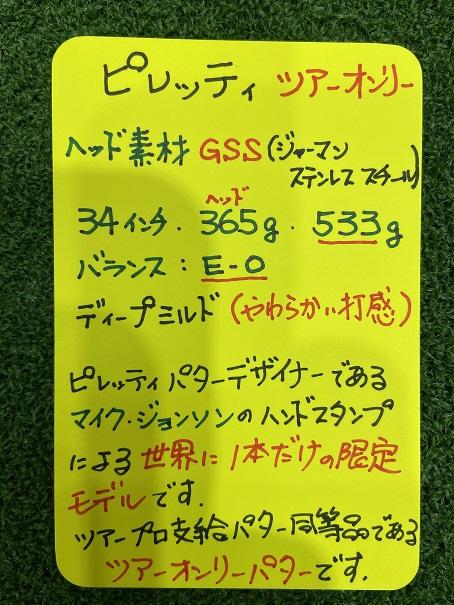 ピレッティ ツアーオンリー
ヘッド素材 GSS(ジャーマン
ステンレス スチール)
ヘッド
34インチ・365g・533g
バランス:E-0
ディープミルド(やわらかい打感)
ピレッティパターデザイナーである
マイク・ジョンソンのハンドスタンプ
による世界に1本だけの限定
モデルです.
ツアープロ支給パター同等品である
ツアーオンリーパターです.